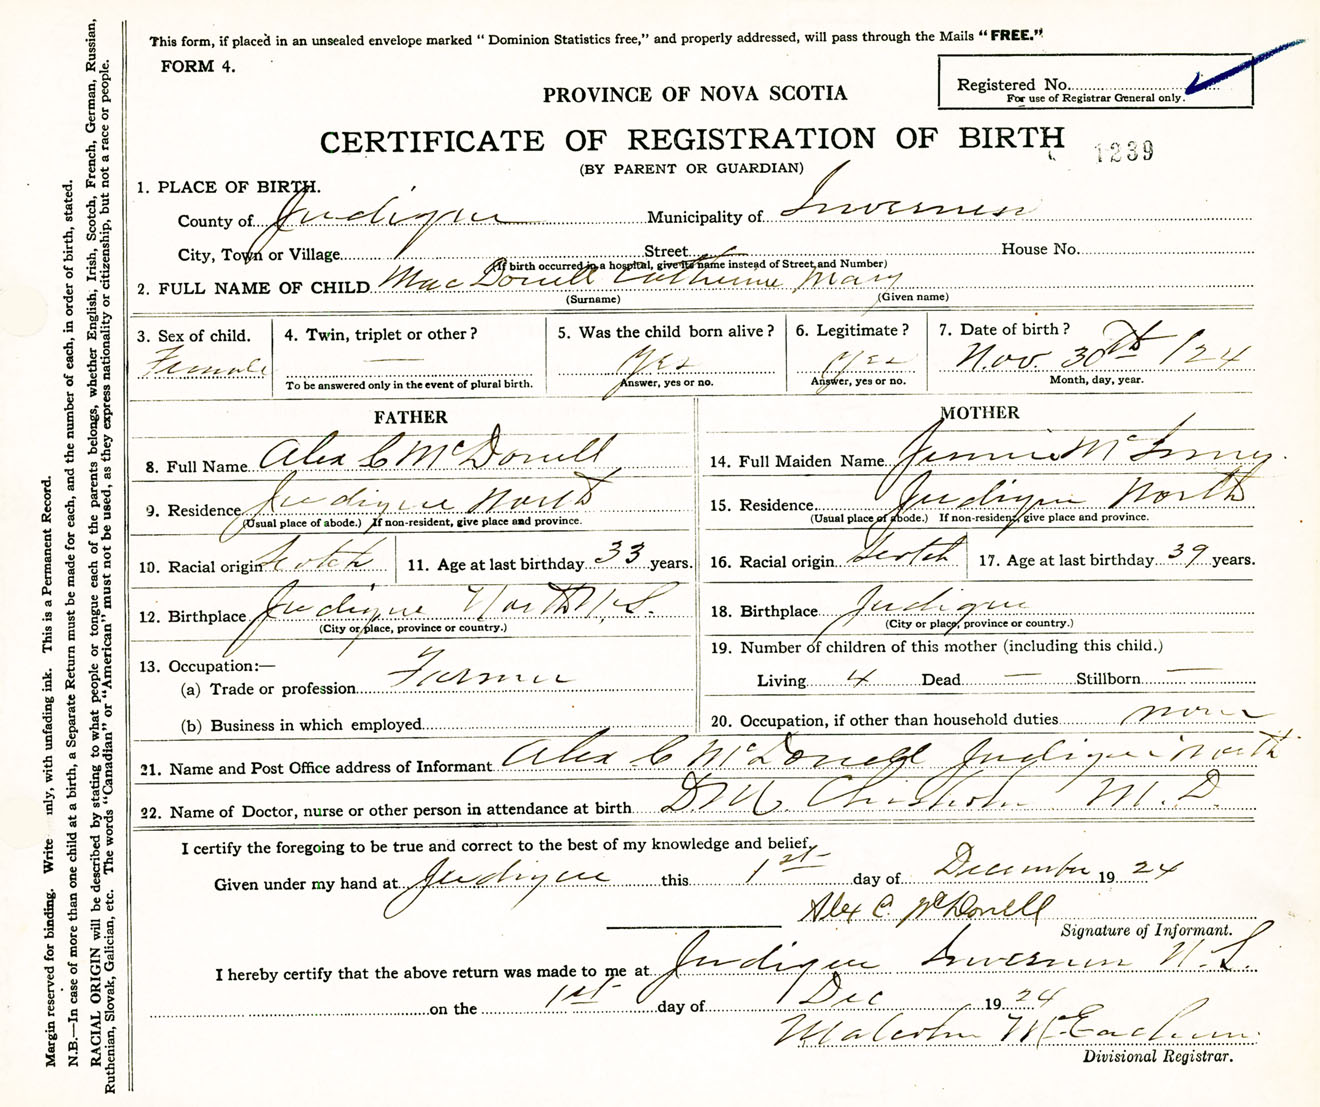 This form, if placed in an unsealed envelope marked "Dominion Statistics free," and properly addressed, will pass through the Mails "FREE."
FORM 4.
Registered No.
For use of Registrar General only.
PROVINCE OF NOVA SCOTIA
CERTIFICATE OF REGISTRATION OF BIRTH
1239
(BY PARENT OR GUARDIAN)
1. PLACE OF BIRTH.
County of Judique Municipality of Inverness
City, Town or Village Street House No.
(If birth occurred in a hospital, give its name instead of Street and Number)
2. FULL NAME OF CHILD MacDonell Catherine Mary
(Surname) (Given name)
3. Sex of child. 4. Twin, triplet or other? 5. Was the child born alive? 6. Legitimate? 7. Date of birth?
Female — Yes Yes Nov. 30th /24
To be answered only in the event of plural birth. Answer, yes or no. Answer, yes or no. Month, day, year.
FATHER
8. Full Name Alex C McDonell
9. Residence Judique North
(Usual place of abode.) If non-resident, give place and province.
10. Racial origin Scotch 11. Age at last birthday 33 years.
12. Birthplace Judique North N.S.
(City or place, province or country.)
13. Occupation:—
(a) Trade or profession Farmer
(b) Business in which employed
MOTHER
14. Full Maiden Name Jennie McInnes
15. Residence Judique North
(Usual place of abode.) If non-resident, give place and province.
16. Racial origin Scotch 17. Age at last birthday 39 years.
18. Birthplace Judique
(City or place, province or country.)
19. Number of children of this mother (including this child.)
Living 4 Dead — Stillborn —
20. Occupation, if other than household duties none
21. Name and Post Office address of Informant Alex C McDonell Judique North
22. Name of Doctor, nurse or other person in attendance at birth Chisholm M.D.
I certify the foregoing to be true and correct to the best of my knowledge and belief.
Given under my hand at Judique this 1st day of December 1924
Alex C. McDonell
Signature of Informant.
I hereby certify that the above return was made to me at Judique Inverness N.S.
on the 1st day of Dec 1924
Malcolm McEachern
Divisional Registrar.
Margin reserved for binding. Write nly, with unfading ink. This is a Permanent Record.
N.B.—In case of more than one child at a birth, a Separate Return must be made for each, and the number of each, in order of birth, stated.
RACIAL ORIGIN will be described by stating to what people or tongue each of the parents belongs, whether English, Irish, Scotch, French, German, Russian,
Ruthenian, Slovak, Galician, etc. The words "Canadian" or "American" must not be used, as they express nationality or citizenship, but not a race or people.